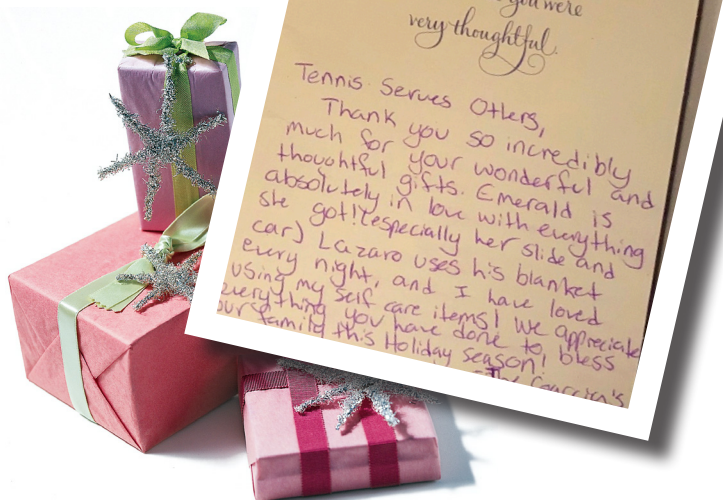 you were
very thoughtful.
Tennis Serves Others,
Thank you so incredibly
much for your wonderful and
thoughtful gifts. Emerald is
absolutely in love with everything
she got! (especially her slide and
car) Lazaro uses his blanket
every night, and I have loved
using my self care items! We appreciate
everything you have done to bless
our family this Holiday season!